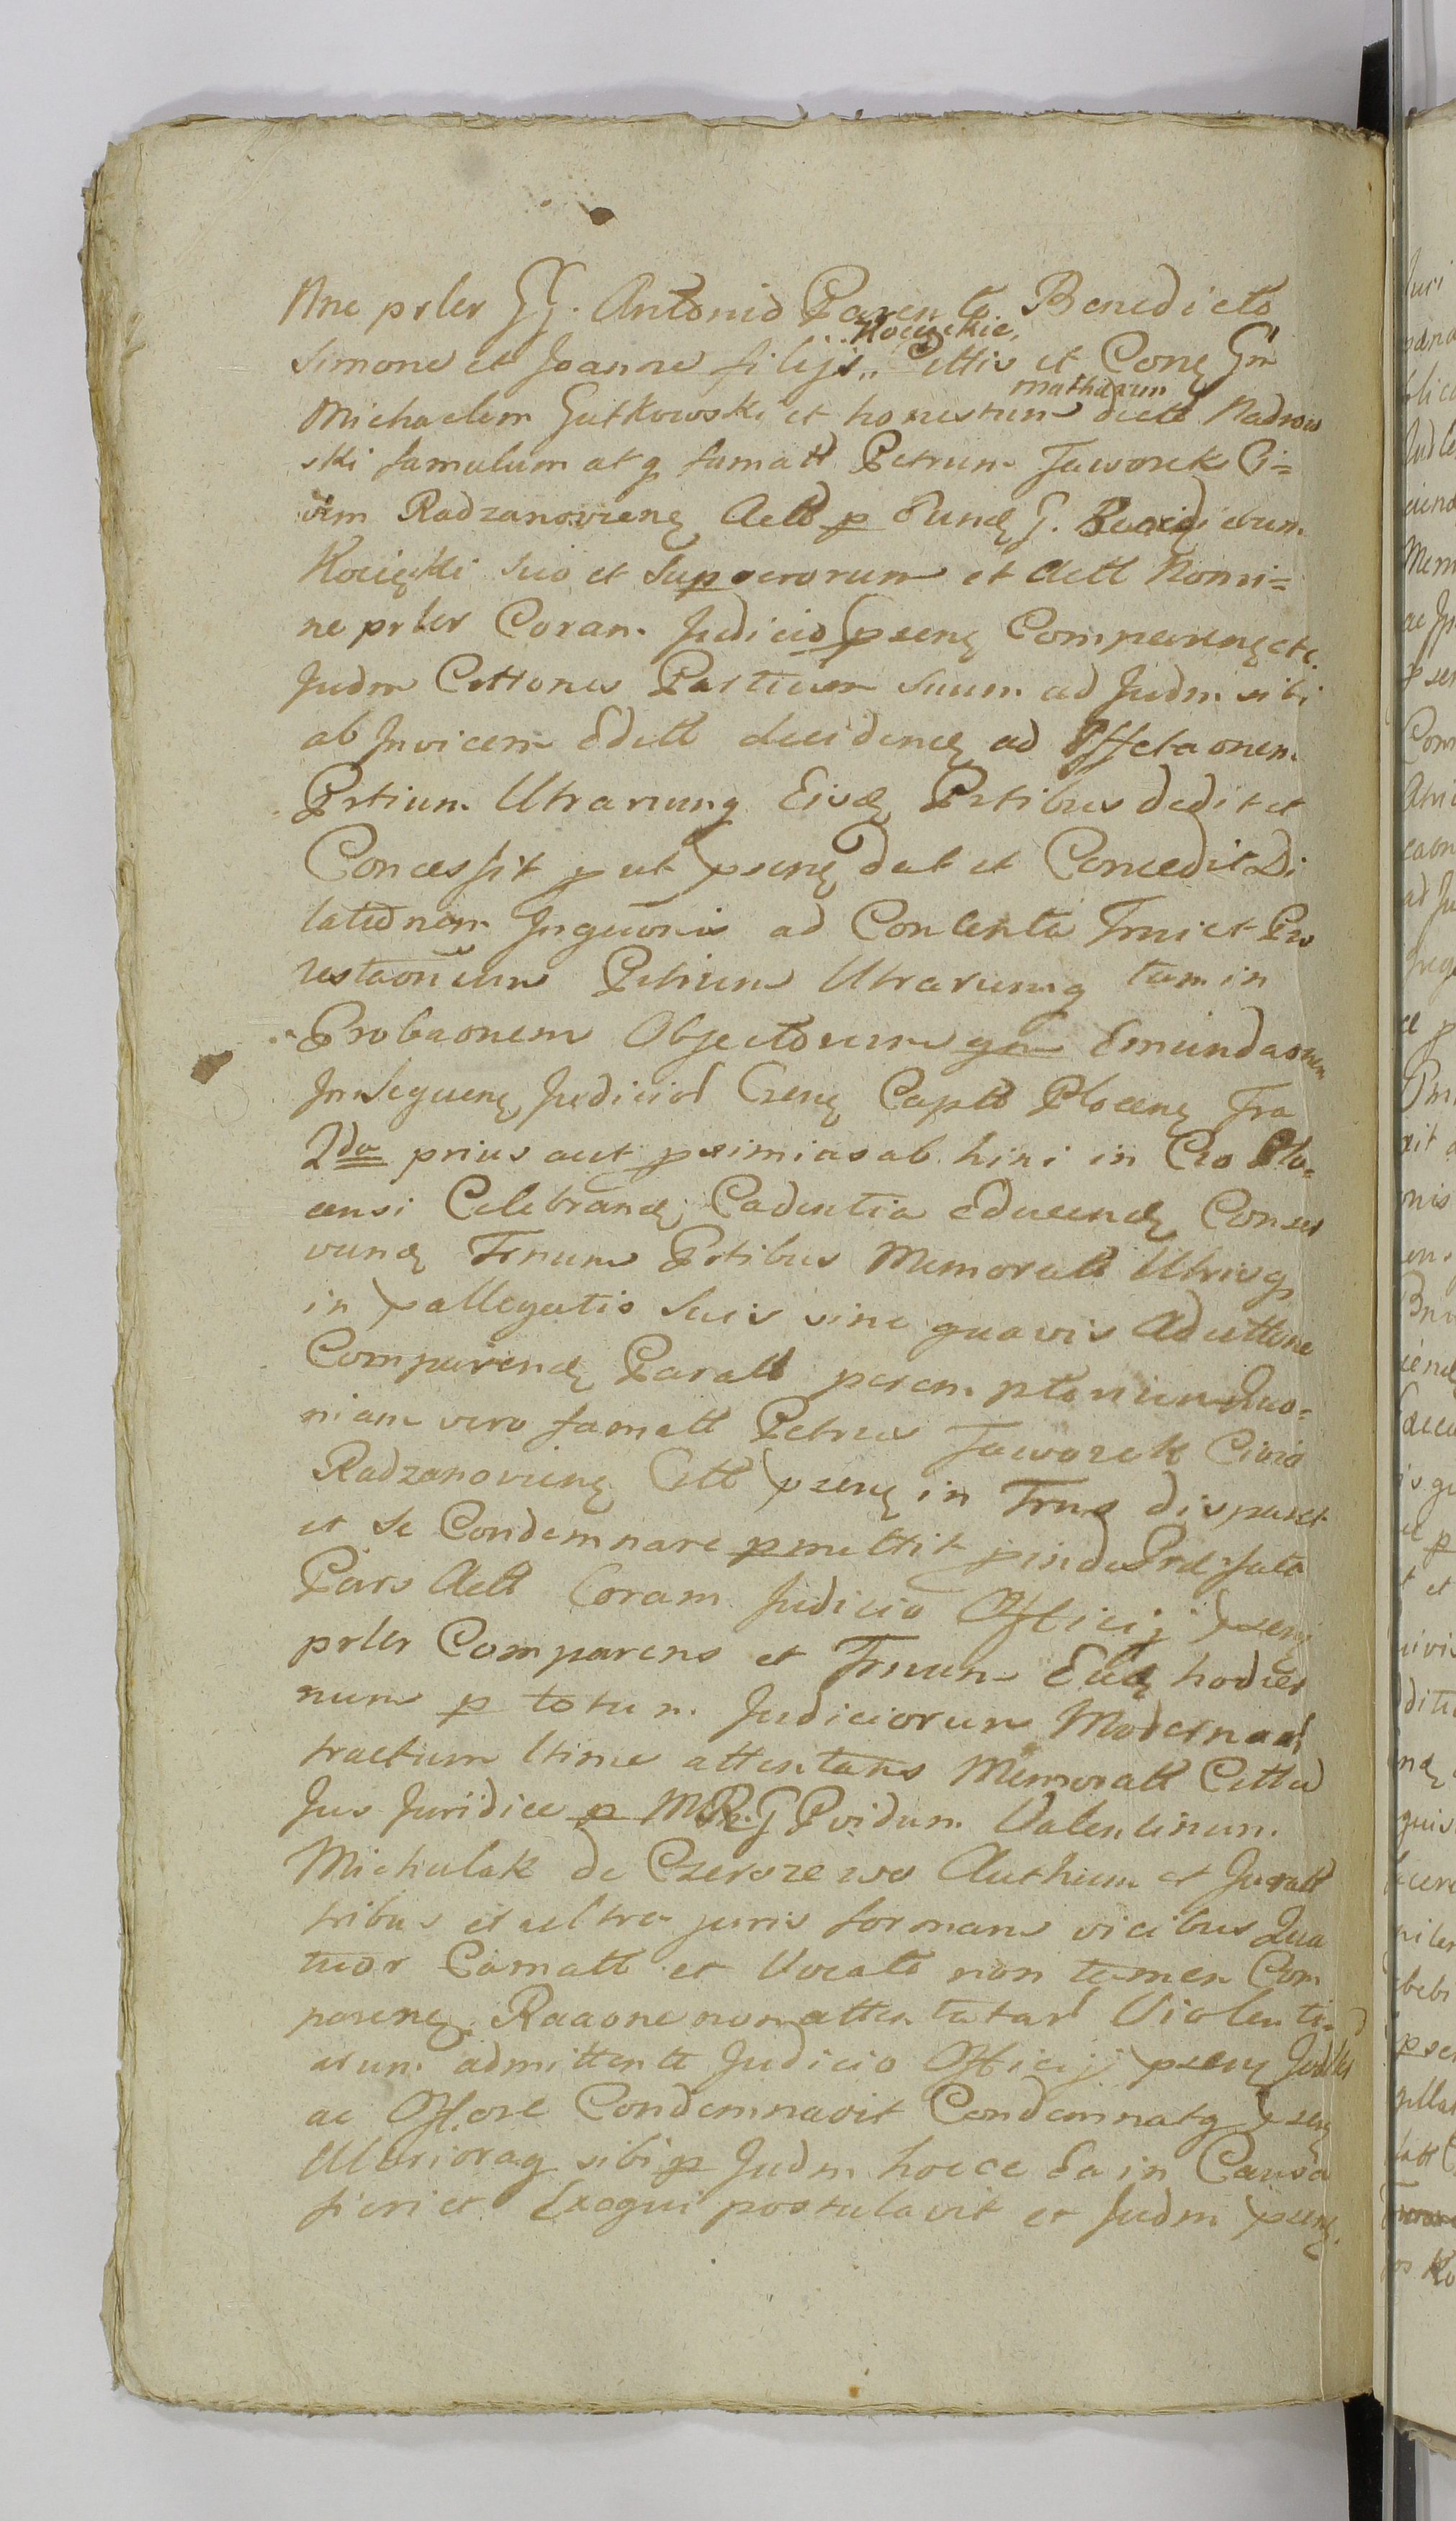 Nne prler GG. Antonio Parente Benedicto
Simone et Joanne filijs Kocięckie, Cittis et Conę Gm
Michaelem Gutkowski et honestum Mathæum dictt Nadrow
ski famulum atq famatt Petrum Jaworek Ci=
vim Radzanovienę Actt p eundę G. Benedictum
Kocięcki suo et Supperorum et Actt Nomi=
ne prler Coram Judicio psenę Comparenę etc.
Judm Cittonis Partium suum ad Judm sibi
ab Invicem Editt decidendę ad Affctaonem
Prtium Utrarumq Eisdę Prtibus dedit et
Concessit put psenę dat et Concedit Di
lationem Inquōnis ad Contenta Trni et Pro
testaōnum Prtium Utrarumq tam in
Probaonem Objectorum qm Emundaonem
In Sequenę Judiciol Czenę Captt Plocenę Fra
2da prius aut primias ab hini in Cro Plo=
censi Celebrandę Cadentia educendę Conser
vandę Trnum Prtibus Memoratt Utrisq
in pallegatis suis sine quavis Adcittone
Comparendę Paratt peremptorium Quo=
niam vero famatt Petrus Jaworek Civis
Radzanovienę Citt psenę in Trno disparet
et se Condemnare pmittit pinde Præfata
Pars Actt Coram Judicio Officij psenę
prler Comparens et Trnum Eudę hodier
num p totum Judiciorum Modernorl
tractum ltime attentans Memoratt Citta
Jus Juridice p M. R. G Pvidum Valentinum
Michulak de Czerszewo Authum et Juratt
tribus et ultra juris formam vicibus Qua
tuor Camatt et Vocatt non tamen Com
parenę Raaone non attentatarl Violenti=
arum admittente Judicio Officij psenę Judler
ac Offiose Condemnavit Condemnatq psenę
Ulterioraq sibi p Judm hocce Ea in Causa
fieri et Exequi postulavit et Judm psenę